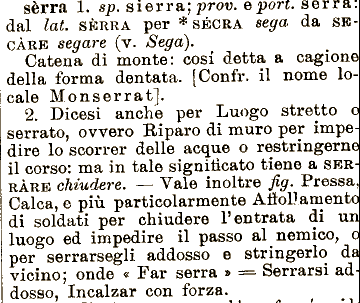 sèrra 1. sp. sierra; prov. e port. serra:
dal lat. SÈRRA per *SÉCRA sega da SE-
CÀRE segare (v. Sega).
Catena di monte: cosí detta a cagione
della forma dentata. [Confr. il nome lo-
cale Monserrat].
2. Dicesi anche per Luogo stretto o
serrato, ovvero Riparo di muro per impe-
dire lo scorrer delle acque o restringerne
il corso: ma in tale significato tiene a SER-
RÀRE chiudere. — Vale inoltre fig. Pressa,
Calca, e più particolarmente Affollamento
di soldati per chiudere l'entrata di un
luogo ed impedire il passo al nemico, o
per serrarsegli addosso e stringerlo da
vicino; onde « Far serra » = Serrarsi ad-
dosso, Incalzar con forza.